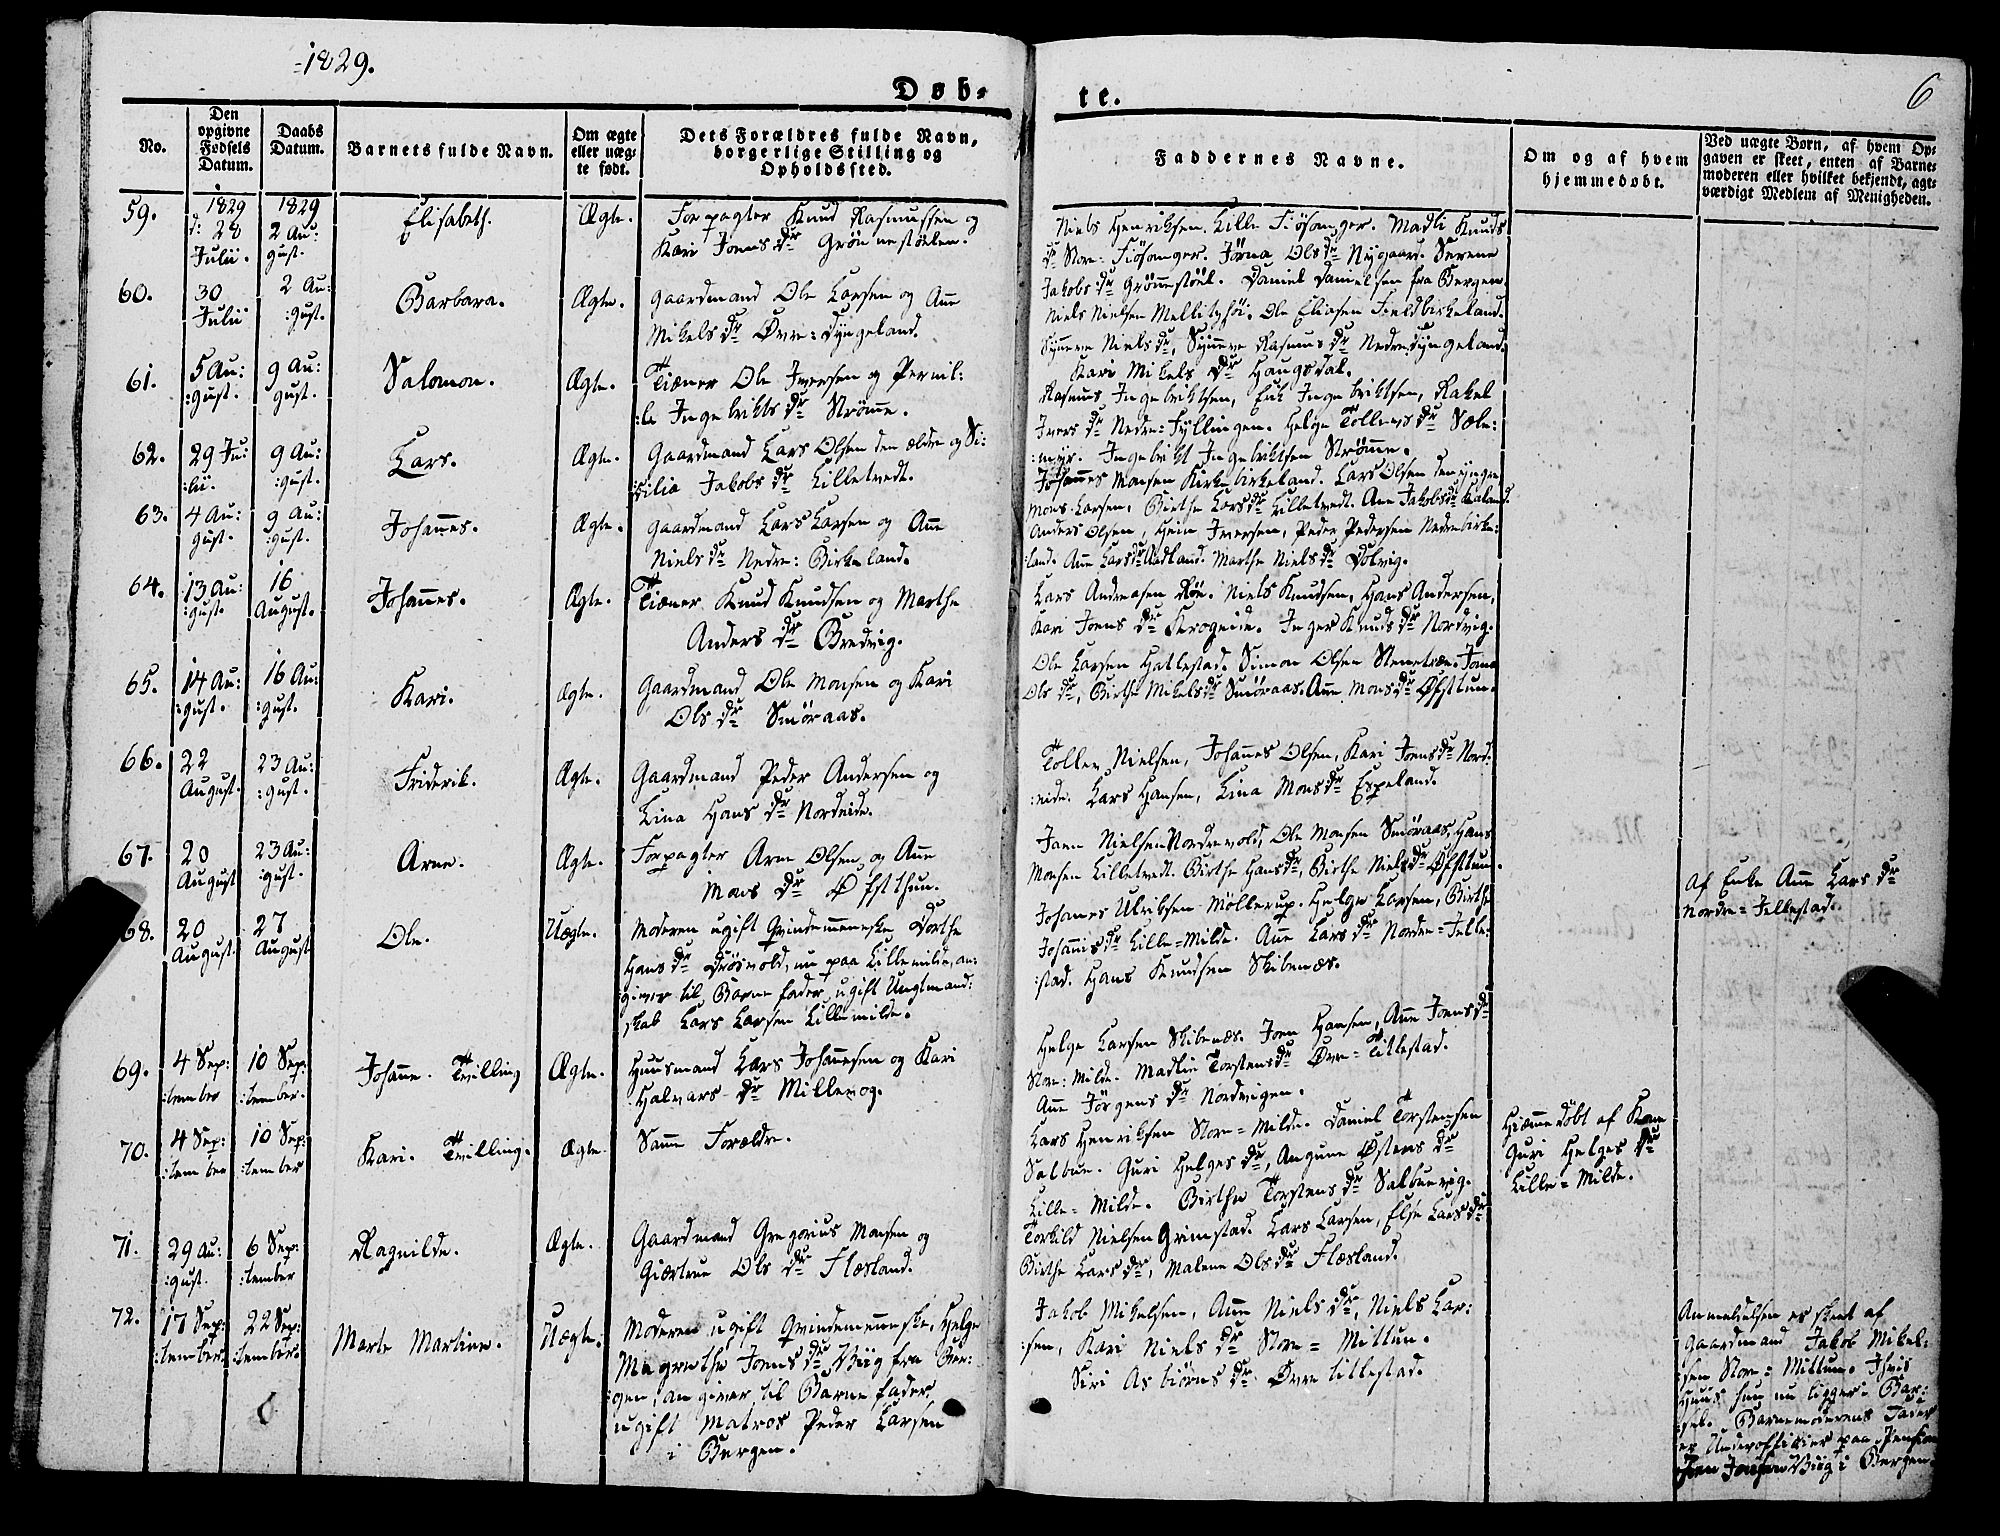 =1829.
Døb=
te.
6
No.
Den opgivne Fødsels Datum.
Daabs Datum.
Barnets fulde Navn.
Om ægte eller uæg-te født.
Dets Forældres fulde Navn, borgerlige Stilling og Opholdssted.
Faddernes Navne.
Om og af hvem hjemmedøbt.
Ved uægte Børn, af hvem Op-gaven er skeet, enten af Barne-moderen eller hvilket bekjendt, agt-værdigt Medlem af Menigheden.
59.
1829 d: 28 Julii.
1829 2 Au: gust.
Elisabeth.
Ægte.
Forpagter Knud Rasmussen og
Kari Joens dr Grønnestølen.
Niels Henriksen Lille Fiøsanger. Madli Knuds
dr Store=Fiøsanger. Jørna Ols dr Nygaard. Serene
Jakobs dr Grønnestøel. Daniel Danielsen fra Bergen
60.
30 Julii
2 Au: :gust.
Barbara.
Ægte.
Gaardmand Ole Larsen og Ane
Mikels dr Øvre=Dyngeland.
Niels Nielsen Mellithøi. Ole Eliasen Fieldbirkeland.
Synneve Niels dr, Synneve Rasmus dr Nedre Dyngeland.
Kari Mikels dr Haugsdal.
61.
5 Au: :gust.
9 Au: gust.
Salomon.
Ægte.
Tiæner Ole Iversen og Pernil:
:le Ingebrikts dr Strømme.
Rasmus Ingebriktsen, Erik Ingebriktsen, Rakel
Ivers dr Nedre=Fyllingen. Helge Tollevs dr Sæle:
:myr. Ingebrikt Ingebriktsen Strømme.
62.
29 Ju: :lii.
9 Au: :gust.
Lars.
Ægte.
Gaardmand Lars Olsen den ældre og Si:
:silia Jakobs dr Lilletvedt.
Johannes Monsen Kirkebirkeland. Lars Olsen den yngre
Mons Larsen, Birthe Lars dr Lilletvedt. Ane Jakobs dr
63.
4 Au: gust.
9 Au: :gust.
Johannes.
Ægte.
Gaardmand Lars Larsen og Ane
Niels dr Nedre=Birkeland.
Anders Olsen, Heine Iversen, Peder Pedersen Nedrebirke:
:land. Ane Lars dr Aadland. Marthe Niels dr Dolvig.
64.
13 Au: :gust.
16 August.
Johannes.
Ægte.
Tiæner Knud Knudsen og Marthe
Anders dr Bredvig.
Lars Andreasen Røe. Niels Knudsen, Hans Andersen,
Kari Joens dr Krogeide. Inger Knuds dr Nordvig.
65.
14 Au: :gust.
16 Au: :gust.
Kari.
Ægte.
Gaardmand Ole Monsen og Kari
Ols dr Smøraas.
Ole Larsen Hatlestad. Simon Olsen Stenetræe.
Ols dr, Birthe Mikels dr Smøraas. Ane Mons dr Øfsttun.
66.
22 August.
23 Au: :gust.
Friderik.
Ægte.
Gaardmand Peder Andersen og
Lina Hans dr Nordeide.
Tollev Nielsen, Johannes Olsen, Kari Joens dr Nord:
:eide. Lars Hansen, Lina Mons dr Espeland.
67.
20 August
23 Au: :gust.
Arne.
Ægte.
Forpagter Arne Olsen og Ane
Mons dr Øfstthun.
Joen Nielsen Nordrevold, Ole Monsen Smøraas, Hans
Monsen Lilletvedt. Birthe Hans dr, Birthe Niels dr Øfsttun.
68.
20 August.
27 August
Ole.
Uægte.
Moderen ugift Qvindemenneske Dorthe
Hans dr Drøsvold, nu paa Lillemilde, an:
:giver til Barnefader ugift Ungtmand:
skab Lars Larsen Lillemilde.
Johanes Ulriksen Møllerup. Helge Larsen, Birthe
Johannis dr Lille=Milde. Ane Lars dr Nordre=Jelle:
:stad. Hans Knudsen Skibenæs.
Af Enke Ane Lars dr
Nordre=Jellestad.
69.
4 Sep: :tember
10 Sep: :tember.
Johanne. Tvilling
Ægte.
Huusmand Lars Johannesen og Kari
Halvars dr Millevog.
Helge Larsen Skibenæs. Joen Hansen, Ane Joens dr
Store=Milde. Madlie Torstens dr Øvre=Titlestad.
Ane Jørgens dr Nordvigen.
70.
4 Sep: :tember
10 Sep: :tember
Kari. Tvilling.
Ægte
Samme Forældre.
Lars Henriksen Store=Milde. Daniel Torstensen
Salbue. Guri Helges dr, Angune Østens dr
Lille=Milde. Birthe Torstens dr Salbuevig.
Hiæmmedøbt af Kone
Guri Helges dr
Lille=Milde.
71.
29 Au: :gust.
6 Sep: :tember
Ragnilde.
Ægte.
Gaardmand Gregorius Monsen og
Giærtrue Ols dr Flesland.
Torkild Nielsen Grimstad. Lars Larsen, Else Lars dr
Birthe Lars dr, Malene Ols dr Flesland.
72.
17 Sep: :tember
22 Sep: :tember.
Marte Martine.
Uægte.
Moderen ugift Qvindemenneske, Helge
Magrethe Joens dr Viig fra Ber:
:gen, angiver til Barnefader,
ugift Matros Peder Larsen
i Bergen.
Jakob Mikelsen, Ane Niels dr, Niels Lar:
:sen, Kari Niels dr Store=Mittun.
Siri Asbiørns dr Øvre titlestad.
Anmeldelsen er skeet af
Gaardmand Jakob Mikel:
:sen Store=Mittun. I hvis
Huus hun nu ligger i Bar:
:sel. Barnemoderens Fader
er Underofficier paa Pension
Joen Viig i Bergen.